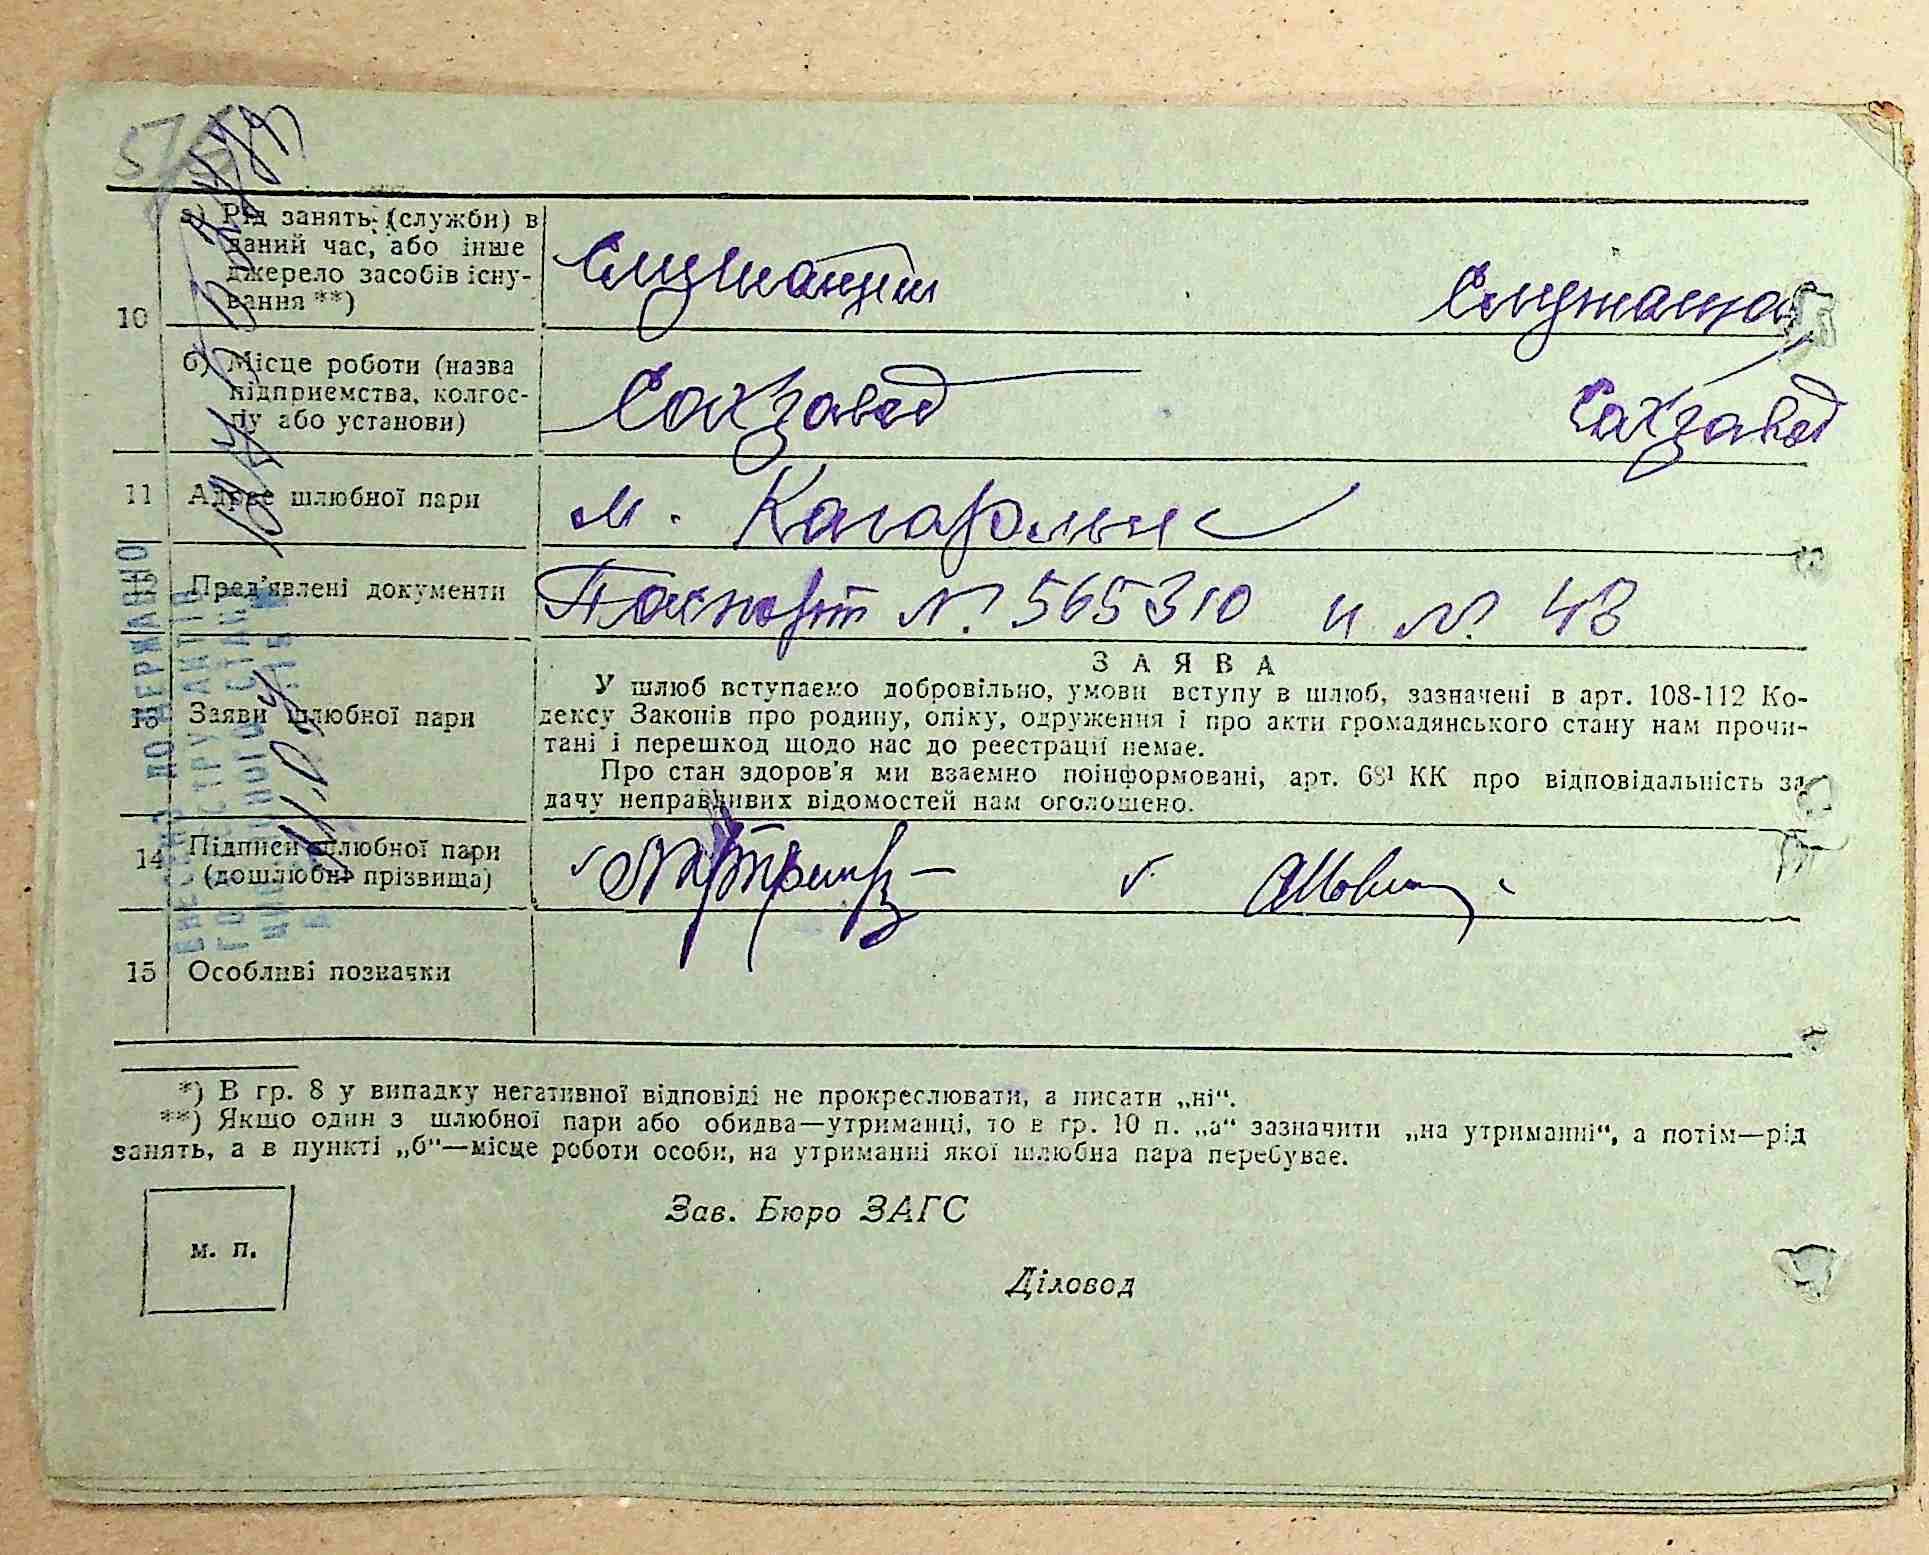 575
а) Рід занять (служби) в
даний час, або інше
джерело засобів існу-
вання **)
Служащий
Служащая
10
б) Місце роботи (назва
підприємства, колгос-
пу або установи)
Сахзавод
Сахзавод
11 Адреса шлюбної пари
м. Кагарлык
Пред'явлені документи
Паспорт № 565310 и № 43
13 Заяви шлюбної пари
ЗАЯВА
У шлюб вступаємо добровільно, умови вступу в шлюб, зазначені в арт. 108-112 Ко-
дексу Законів про родину, опіку, одруження і про акти громадянського стану нам прочи-
тані і перешкод щодо нас до реєстрації немає.
Про стан здоров'я ми взаємно поінформовані, арт. 68¹ КК про відповідальність за
дачу неправдивих відомостей нам оголошено.
14 Підписи шлюбної пари
(дошлюбні прізвища)
15 Особливі позначки
*) В гр. 8 у випадку негативної відповіді не прокреслювати, а писати „ні“.
**) Якщо один з шлюбної пари або обидва—утриманці, то в гр. 10 п. „а“ зазначити „на утриманні“, а потім—рід
занять, а в пункті „б“—місце роботи особи, на утриманні якої шлюбна пара перебуває.
Зав. Бюро ЗАГС
м. п.
Діловод